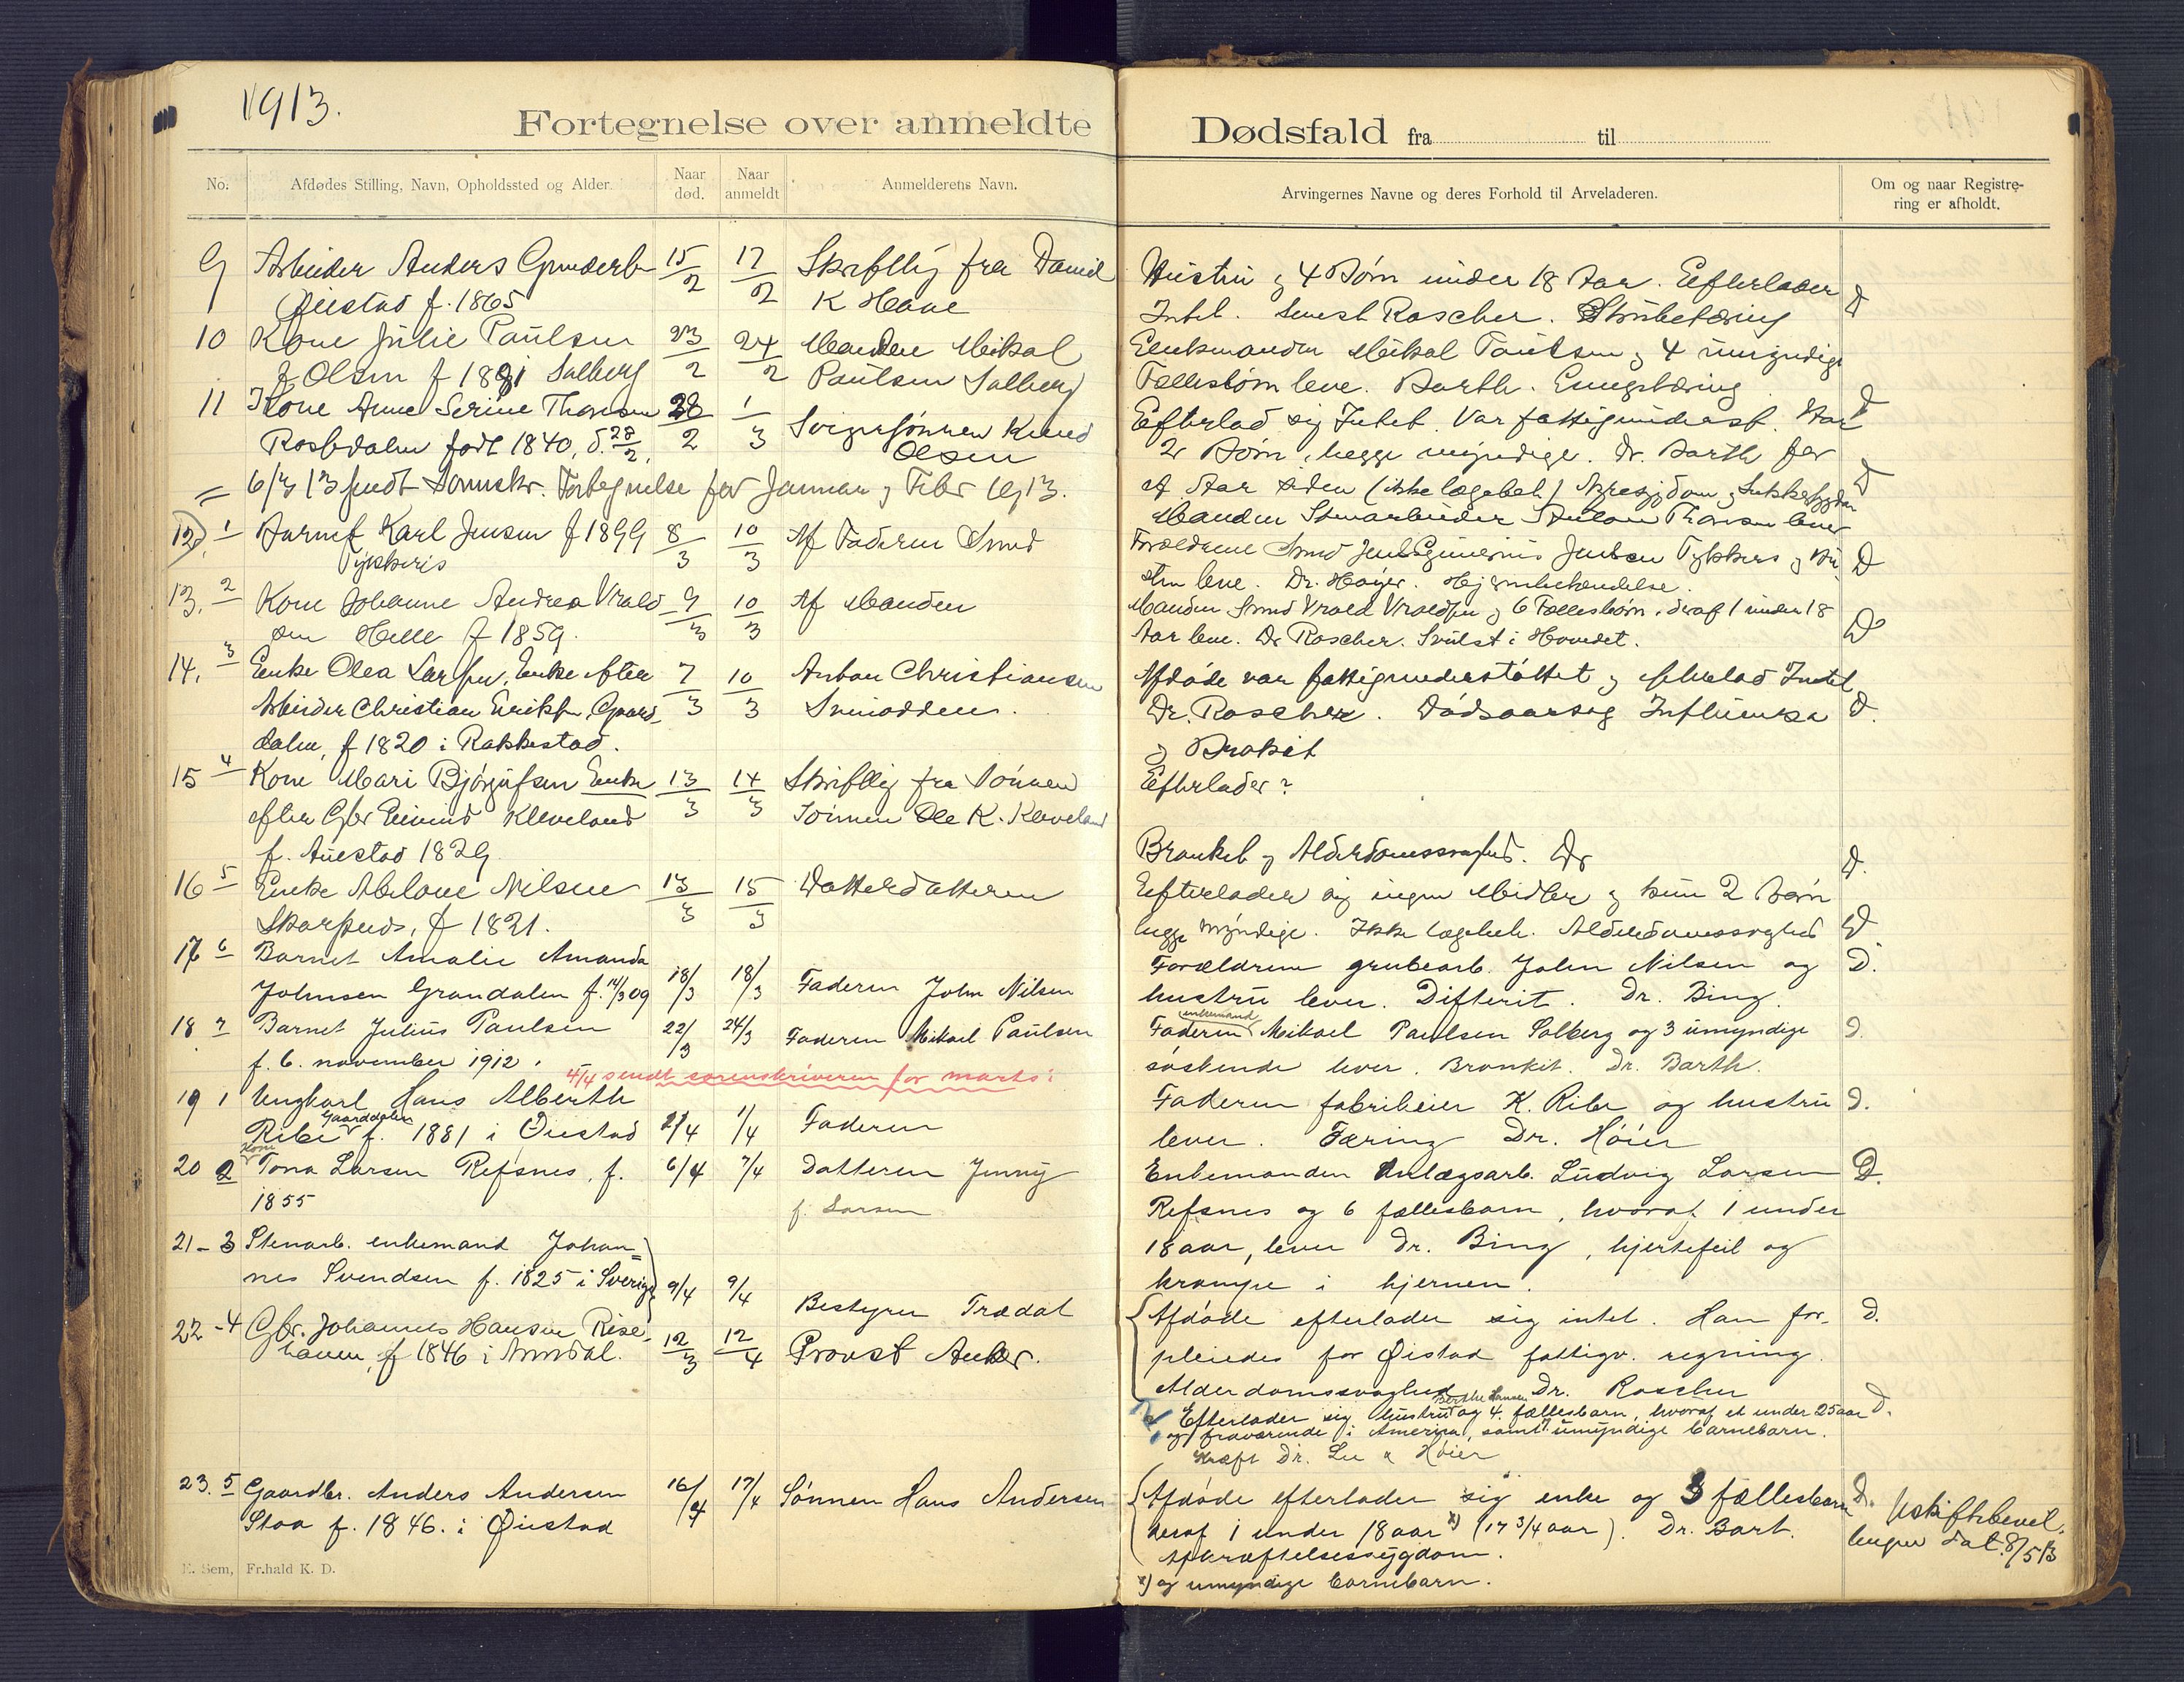 1913.
Fortegnelse over anmeldte Dødsfald fra til
No.
Afdødes Stilling, Navn, Opholdssted og Alder.
Naar død.
Naar anmeldt
Anmelderens Navn.
Arvingernes Navne og deres Forhold til Arveladeren.
Om og naar Registrering er afholdt.
9 Arbeider Anders 15/2 17/2 Skriftlig fra Daniel
Øiestad f. 1865 K Have
Hustru og 4 Børn under 18 Aar. Efterlader D
Intet. Roscher. Strubetæring
10 Kone Julie Paulsen 23/2 24/2 Manden Mikal
f Olsen f 1881 Solberg Paulsen Solberg
Enkemanden Mikal Paulsen og 4 umyndige
Fællesbørn leve. Barth. Lungetæring D
11 Kone Anne Serine Thorsen 28/2 1/3 Svigersønnen Knud
født 1840, d. 28/2. Olsen
Efterlod sig Intet. Var fattigunderst. Har
2 Børn, begge myndige. Dr. Barth for
Aar siden (ikke lægebeh.) Nyresygdom og Sukkersyge D
Manden Stenarbeider Thorsen lever
6/3 13 sendt Sorenskr. Fortegnelse for Januar og Febr 1913.
12. 1 Barnet Karl Jensen f 1899 8/3 10/3 Af Faderen Smed
Forældrene Smed Jens Jensen og Hu- D
stru leve. Dr. Høyer. Hjernebetændelse.
13. 2 Kone Johanne Andrea Vrold 9/3 10/3 Af Manden
sen Helle f 1859.
Manden Smed Vrold Vroldsen og 6 Fællesbørn, deraf 1 under 18
Aar leve. Dr Roscher. Svulst i Hovedet. D
14. 3 Enke Olea Larsen, Enke efter 7/3 10/3 Anton Christiansen
Arbeider Christian Eriksen, Gaard-
dalen, f 1820 i Rakkestad.
Afdøde var fattigunderstøttet og efterlod Intet
Dr. Roscher. Dødsaarsag Influensa D.
og Bronkit
15 4 Kone Mari Bjørgufsen Enke 13/3 14/3 Skriftlig fra Sønnen
efter Gbr Eivind Kleveland Sønnen Ole K. Kleveland
f. Austad 1829
Efterlader?
Bronkit og Alderdomssvaghed. Dr D.
16 5 Enke Abelone Nilsen 13/3 15/3 Datterdatteren
f 1821.
Efterlader sig ingen Midler og kun 2 Børn
begge myndige. Ikke lægebeh. Alderdomssvaghed D
17 6 Barnet Amalie Amanda
Johnsen Grandalen f. 14/3 09 18/3 18/3 Faderen John Nilsen
Forældrene grubearb. John Nilsen og D.
hustru lever. Difterit. Dr. Bing.
18 7 Barnet Julius Paulsen 22/3 24/3 Faderen Mikael Paulsen
f. 6. november 1912.
enkemand
Faderen Mikael Paulsen Solberg og 3 umyndige D.
søskende lever. Bronkit. Dr. Barth.
4/4 sendt sorenskriveren for marts:
19 1 Ungkarl Hans Alberth
Gaarddalen
Ribe f. 1881 i Øiestad 21/4 1/4 Faderen
Faderen fabrikeier K. Ribe og hustru D.
lever. Tæring Dr. Høier
Kone
20 2 Tona Larsen Refsnes, f. 6/4 7/4 Datteren Jenny
1855 f. Larsen
Enkemanden Anlægsarb. Ludvig Larsen D.
Refsnes og 6 fællesbarn, hvoraf 1 under
18 aar, lever Dr. Bing, hjertefeil og
krampe i hjernen.
21 - 3 Stenarb. enkemand Johan=
nes Svendsen f. 1825 i Sverige 9/4 9/4 Bestyrer Trædal
Afdøde efterlader sig intet. Han for- D.
pleiedes for Øistad fattigv. regning.
Alderdomssvaghed Dr. Roscher
22 - 4 Gbr. Johannes Hansen Rise-
haven, f 1846 i Arendal. 12/3 12/4 Provst Anker.
Berthe Hansen
Efterlader sig hustru og 4 fællesbarn, hvoraf et under 25 aar D.
og fraværende i Amerika, samt umyndige barnebarn.
Kræft Dr. Lee & Høier
23. 5 Gaardbr. Anders Andersen 16/4 17/4 Sønnen Hans Andersen
Stoa f. 1846. i Øiestad
Afdøde efterlader sig enke og 3 fællesbarn D. Uskiftebevil-
deraf 1 under 18 aar x) (17 3/4 aar). Dr. Bart. lingen dat. 8/5 13
Afkræftelsessygdom.
x) og umyndige barnebarn.
E. Sem, Fr.hald K. D.